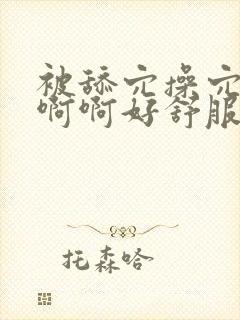 被舔穴操穴
啊啊好舒服
托森哈